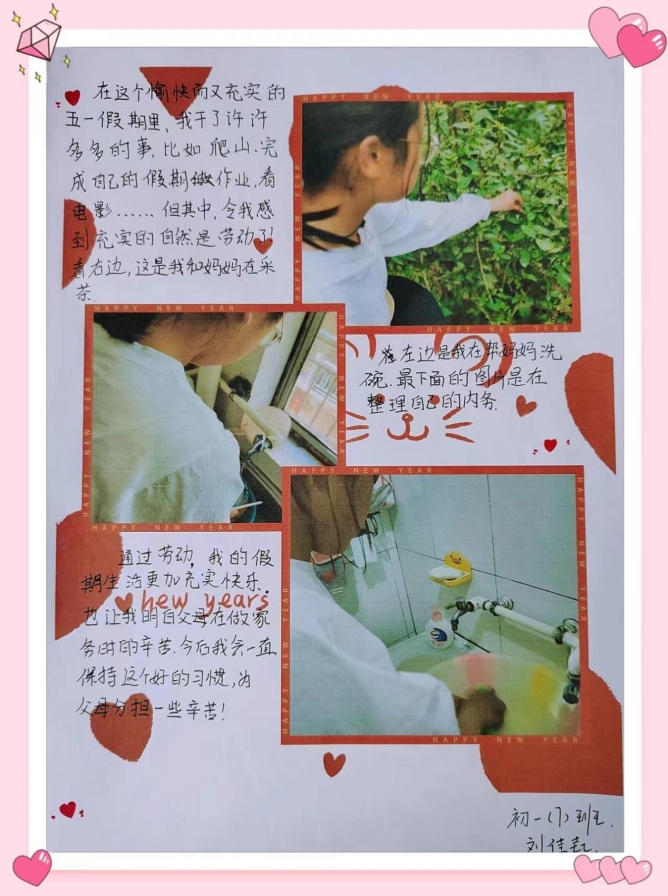 在这个愉快而又充实的
五一假期里,我干了许许
多多的事,比如爬山.完
成自己的假期作业,看
电影……但其中,令我感
到充实的自然是劳动了!
看右边,这是我和妈妈在采
茶.
HAPPY NEW YEAR
HAPPY NEW YEAR
HAPPY NEW YEAR
HAPPY NEW YEAR
左边是我在帮妈妈洗
碗.最下面的图片是在
整理自己的内务.
HAPPY NEW YEAR
HAPPY NEW YEAR
HAPPY NEW YEAR
HAPPY NEW YEAR
通过劳动,我的假
期生活更加充实快乐.
new years
也让我明白父母在做家
务时的辛苦.今后我会一直
保持这个好的习惯,为
父母分担一些辛苦!
HAPPY NEW YEAR
HAPPY NEW YEAR
HAPPY NEW YEAR
HAPPY NEW YEAR
初一(7)班.
刘佳